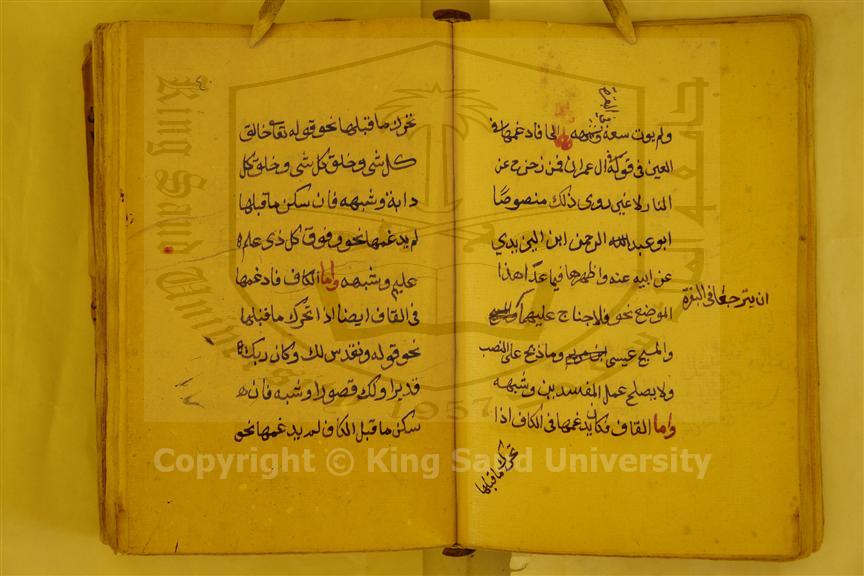 ولم يوت سعة وشبهه واما الحا فادغمها في
العين في قوله في ال عمران فمن زحزح عن
النار لا غير روى ذلك منصوصًا
ابو عبد الله الرحمن ابن اليزيدي
عن ابيه عنه واظهرها فيما عدا هذا
الموضع نحو فلا جناح عليهما
والمسيح عيسى وما ذبح على النصب
ولا يصلح عمل المفسدين وشبهه
واما القاف فكان يدغمها في الكاف اذا
تحرك ماقبلها
ان يتراجعا في البقرة
في البقرة
تحرك ما قبلها نحو قوله تعالى خالق
كل شى وخلق كل شى وخلق كل
دابة وشبهه فان سكن ما قبلها
لم يدغمها نحو وفوق كل ذى علم
عليم وشبهه واما الكاف فادغمها
فى القاف ايضا اذا تحرك ما قبلها
نحو قوله ونقدس لك وكان ربك
قديرا ولك قصورا وشبهه فان
سكن ما قبل الكاف لم يدغمها نحو
King Saud University
جامعة الملك سعود
1957
Copyright © King Saud University